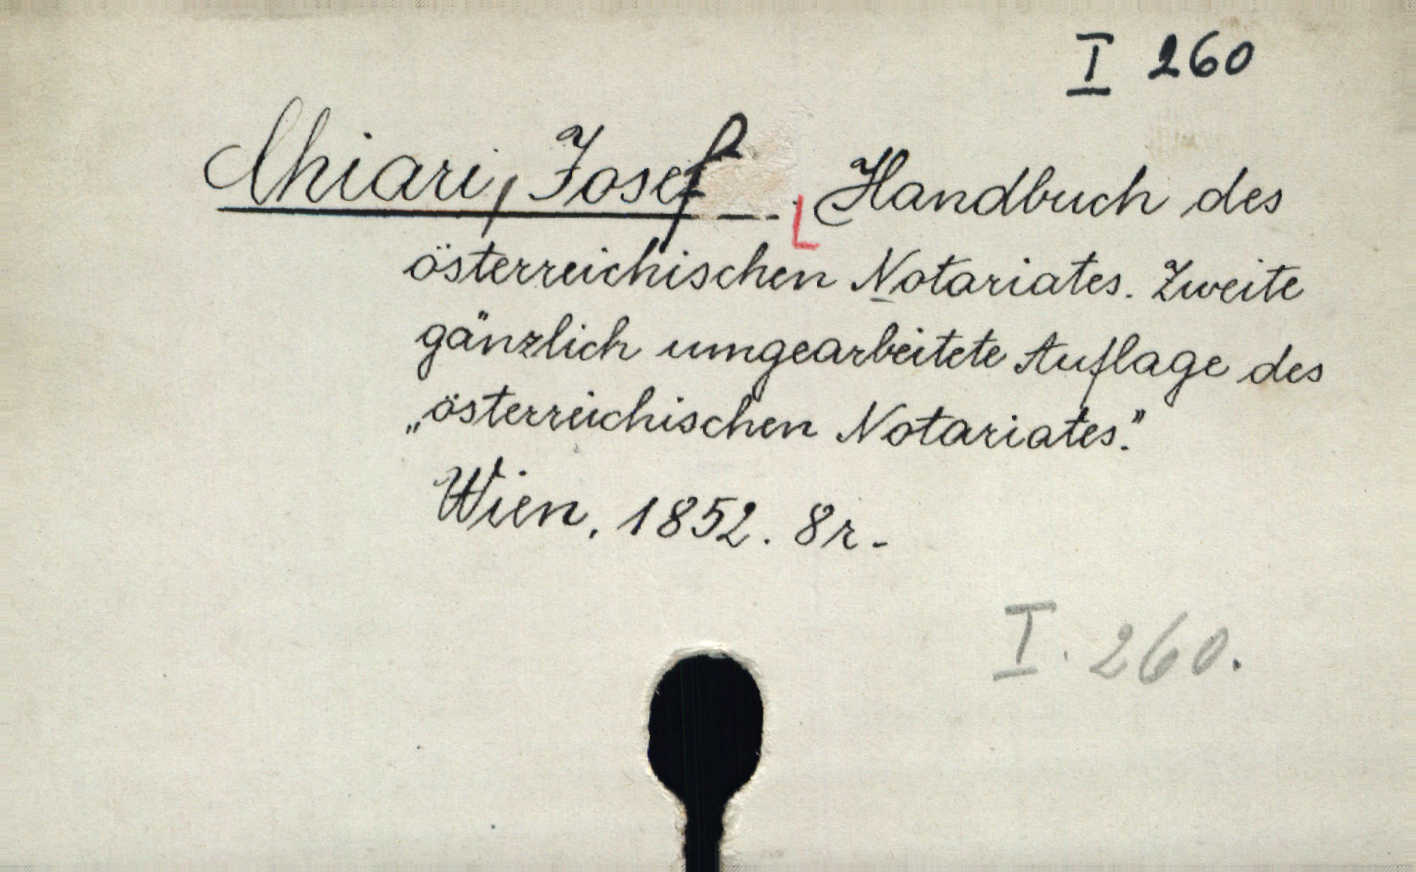 I 260
Chiari, Josef Handbuch des
österreichischen Notariates. Zweite
gänzlich umgearbeitete Auflage des
„österreichischen Notariates."
Wien, 1852. 8r.-
I. 260.